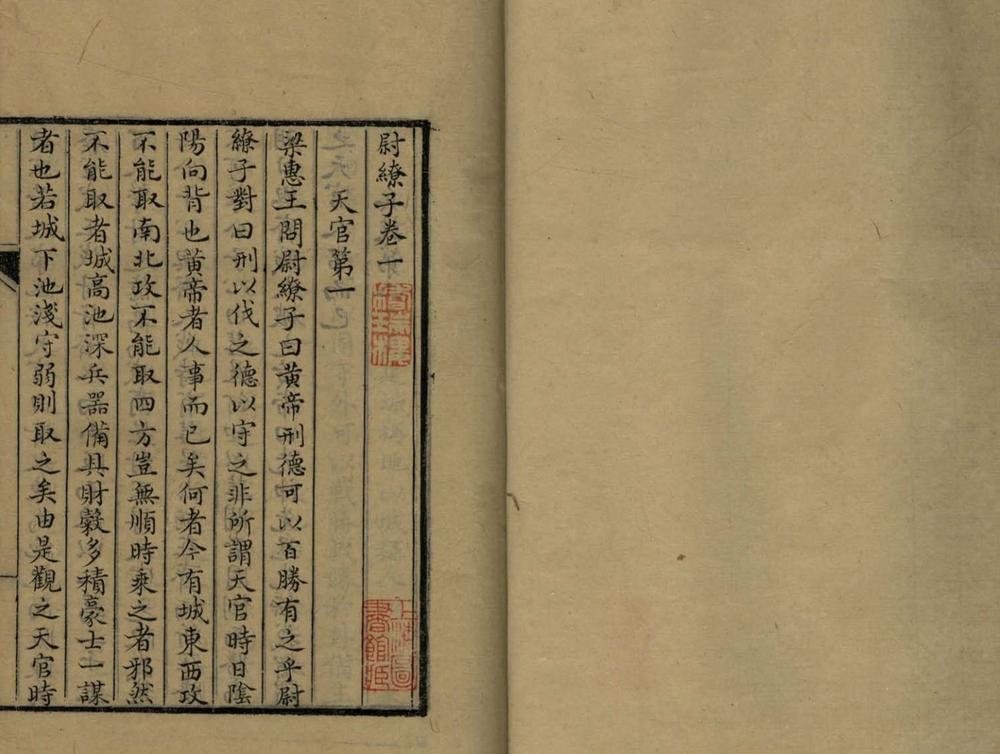 尉繚子卷一
天官第一
梁惠王問尉繚子曰黃帝刑德可以百勝有之乎尉
繚子對曰刑以伐之德以守之非所謂天官時日陰
陽向背也黃帝者人事而已矣何者今有城東西攻
不能取南北攻不能取四方豈無順時乘之者邪然
不能取者城高池深兵器備具財穀多積豪士一謀
者也若城下池淺守弱則取之矣由是觀之天官時
上海圖
書館藏